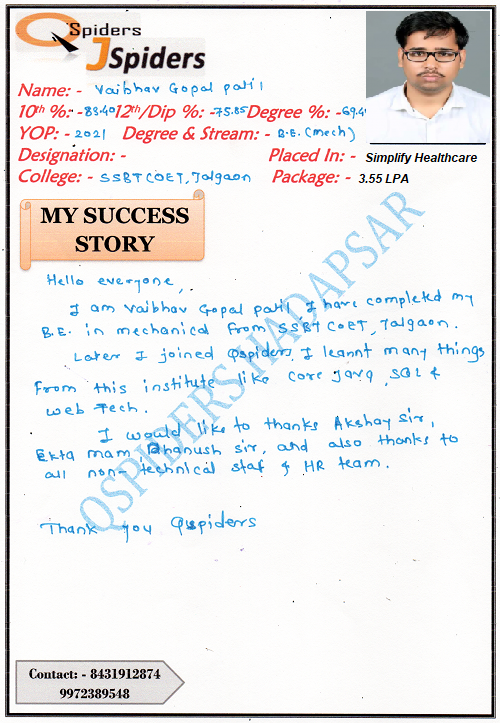 QSpiders
JSpiders
Name: - Vaibhav Gopal patil
10th %: -83.40 12th/Dip %: -75.85 Degree %: -69.4
YOP: - 2021 Degree & Stream: - B.E. (mech)
Designation: - Placed In: - Simplify Healthcare
College: - SSBT COET, Jalgaon Package: - 3.55 LPA
MY SUCCESS
STORY
Hello everyone,
I am Vaibhav Gopal patil I have completed my
B.E. in mechanical from SSBT COET, Jalgaon.
Later I joined Qspiders I learnt many things
From this institute like core java, SQL &
web Tech.
I would like to thanks Akshay sir,
Ekta mam Dhanush sir, and also thanks to
all non-technical staf & HR team.
Thank you Qspiders
QSPIDERS HADAPSAR
Contact: - 8431912874
9972389548